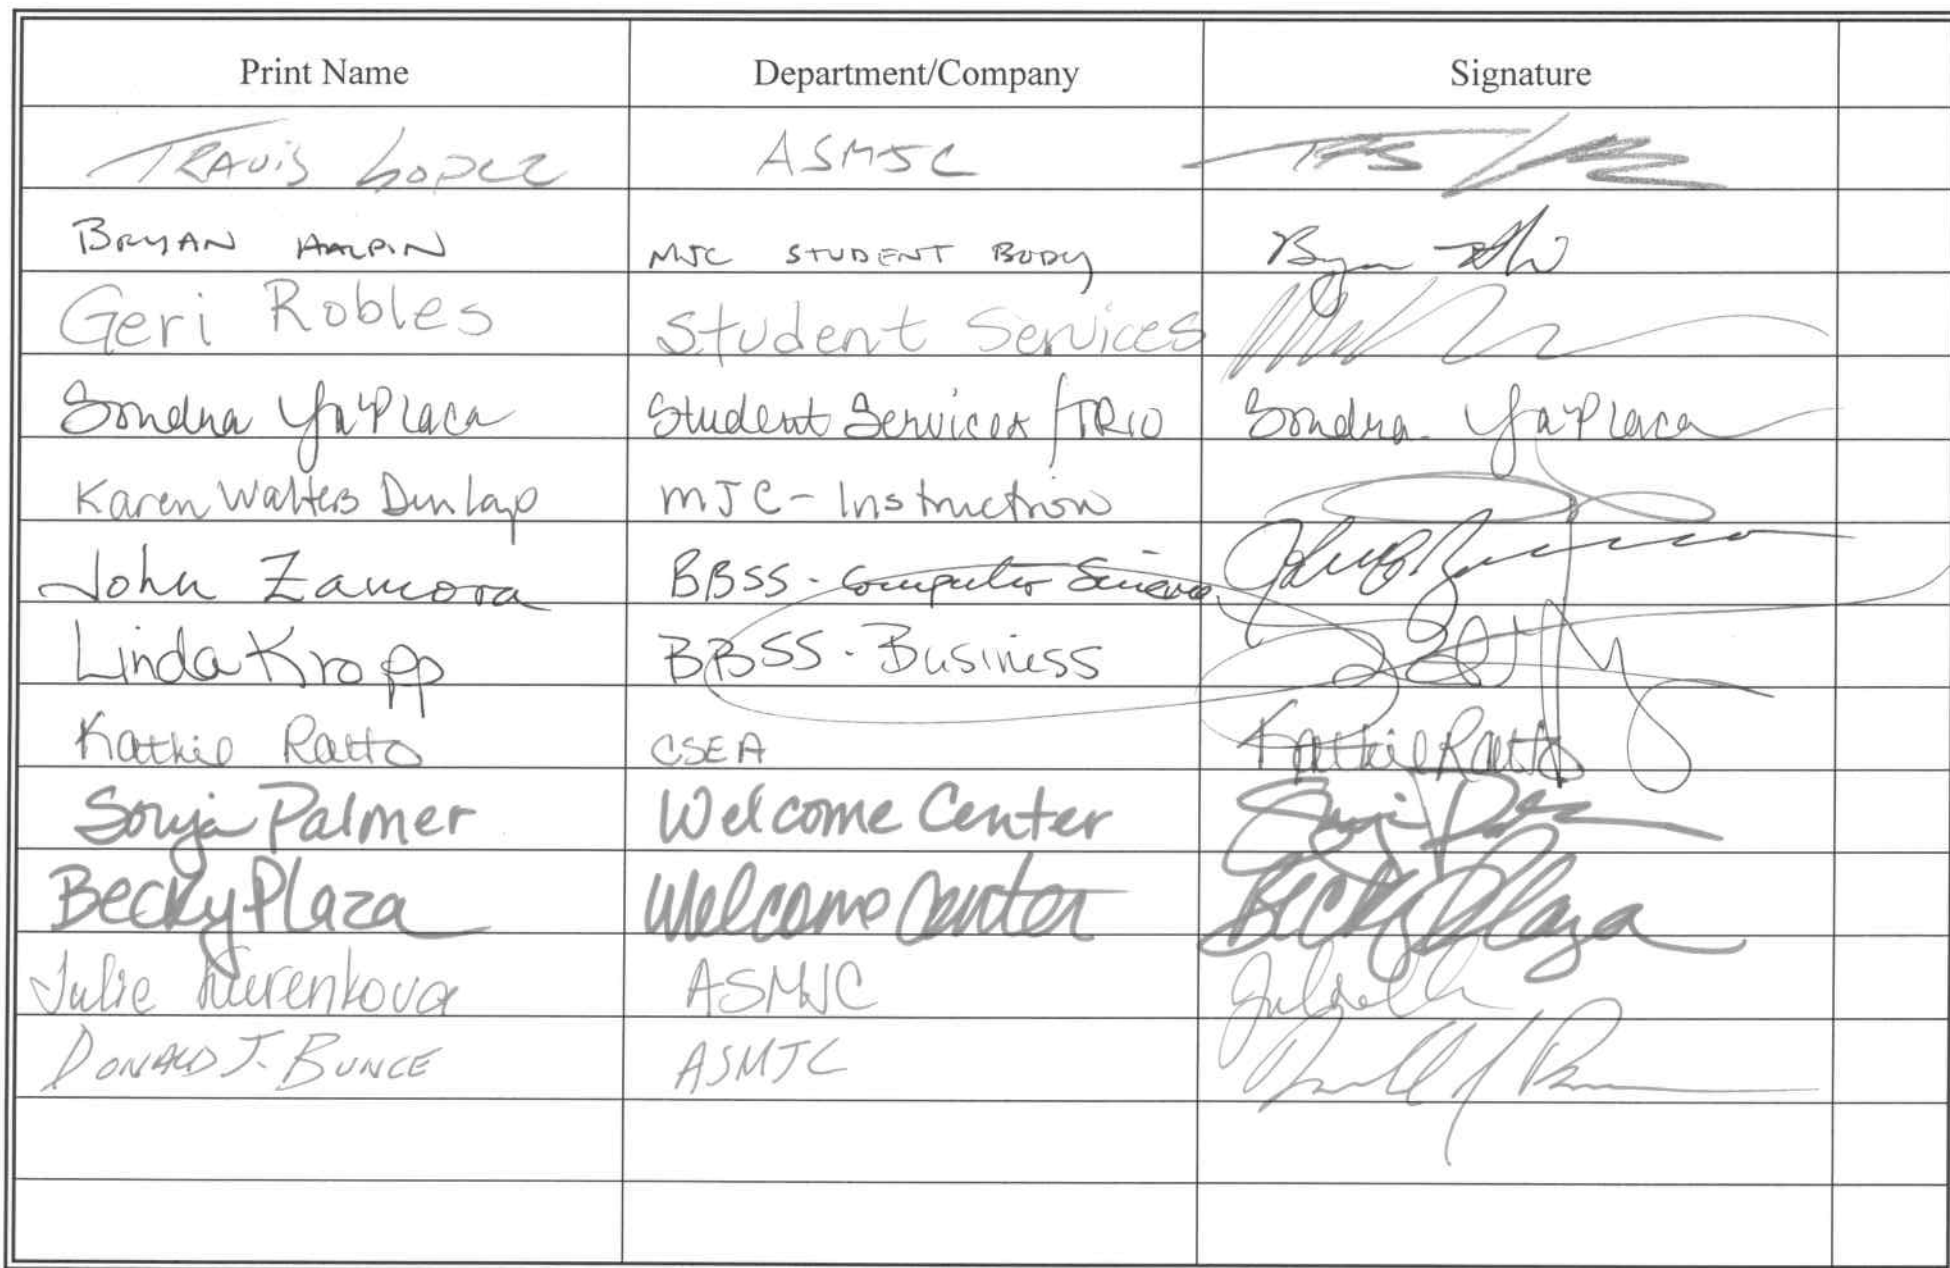 Print Name Department/Company Signature
TRAVIS LOPEZ ASMJC
BRYAN HALPIN MJC STUDENT BODY
Geri Robles Student Services
Sondra Ya'Placa Student Services/TRIO Sondra Ya'Placa
Karen Walters Dunlap MJC - Instruction
John Zamora BBSS - Computer Science
Linda Kropp BBSS - Business
Kathie Ratto CSEA Kathie Ratto
Sonja Palmer Welcome Center
Becky Plaza Welcome Center Becky Plaza
Julie ASMJC
DONALD J. BUNCE ASMJC